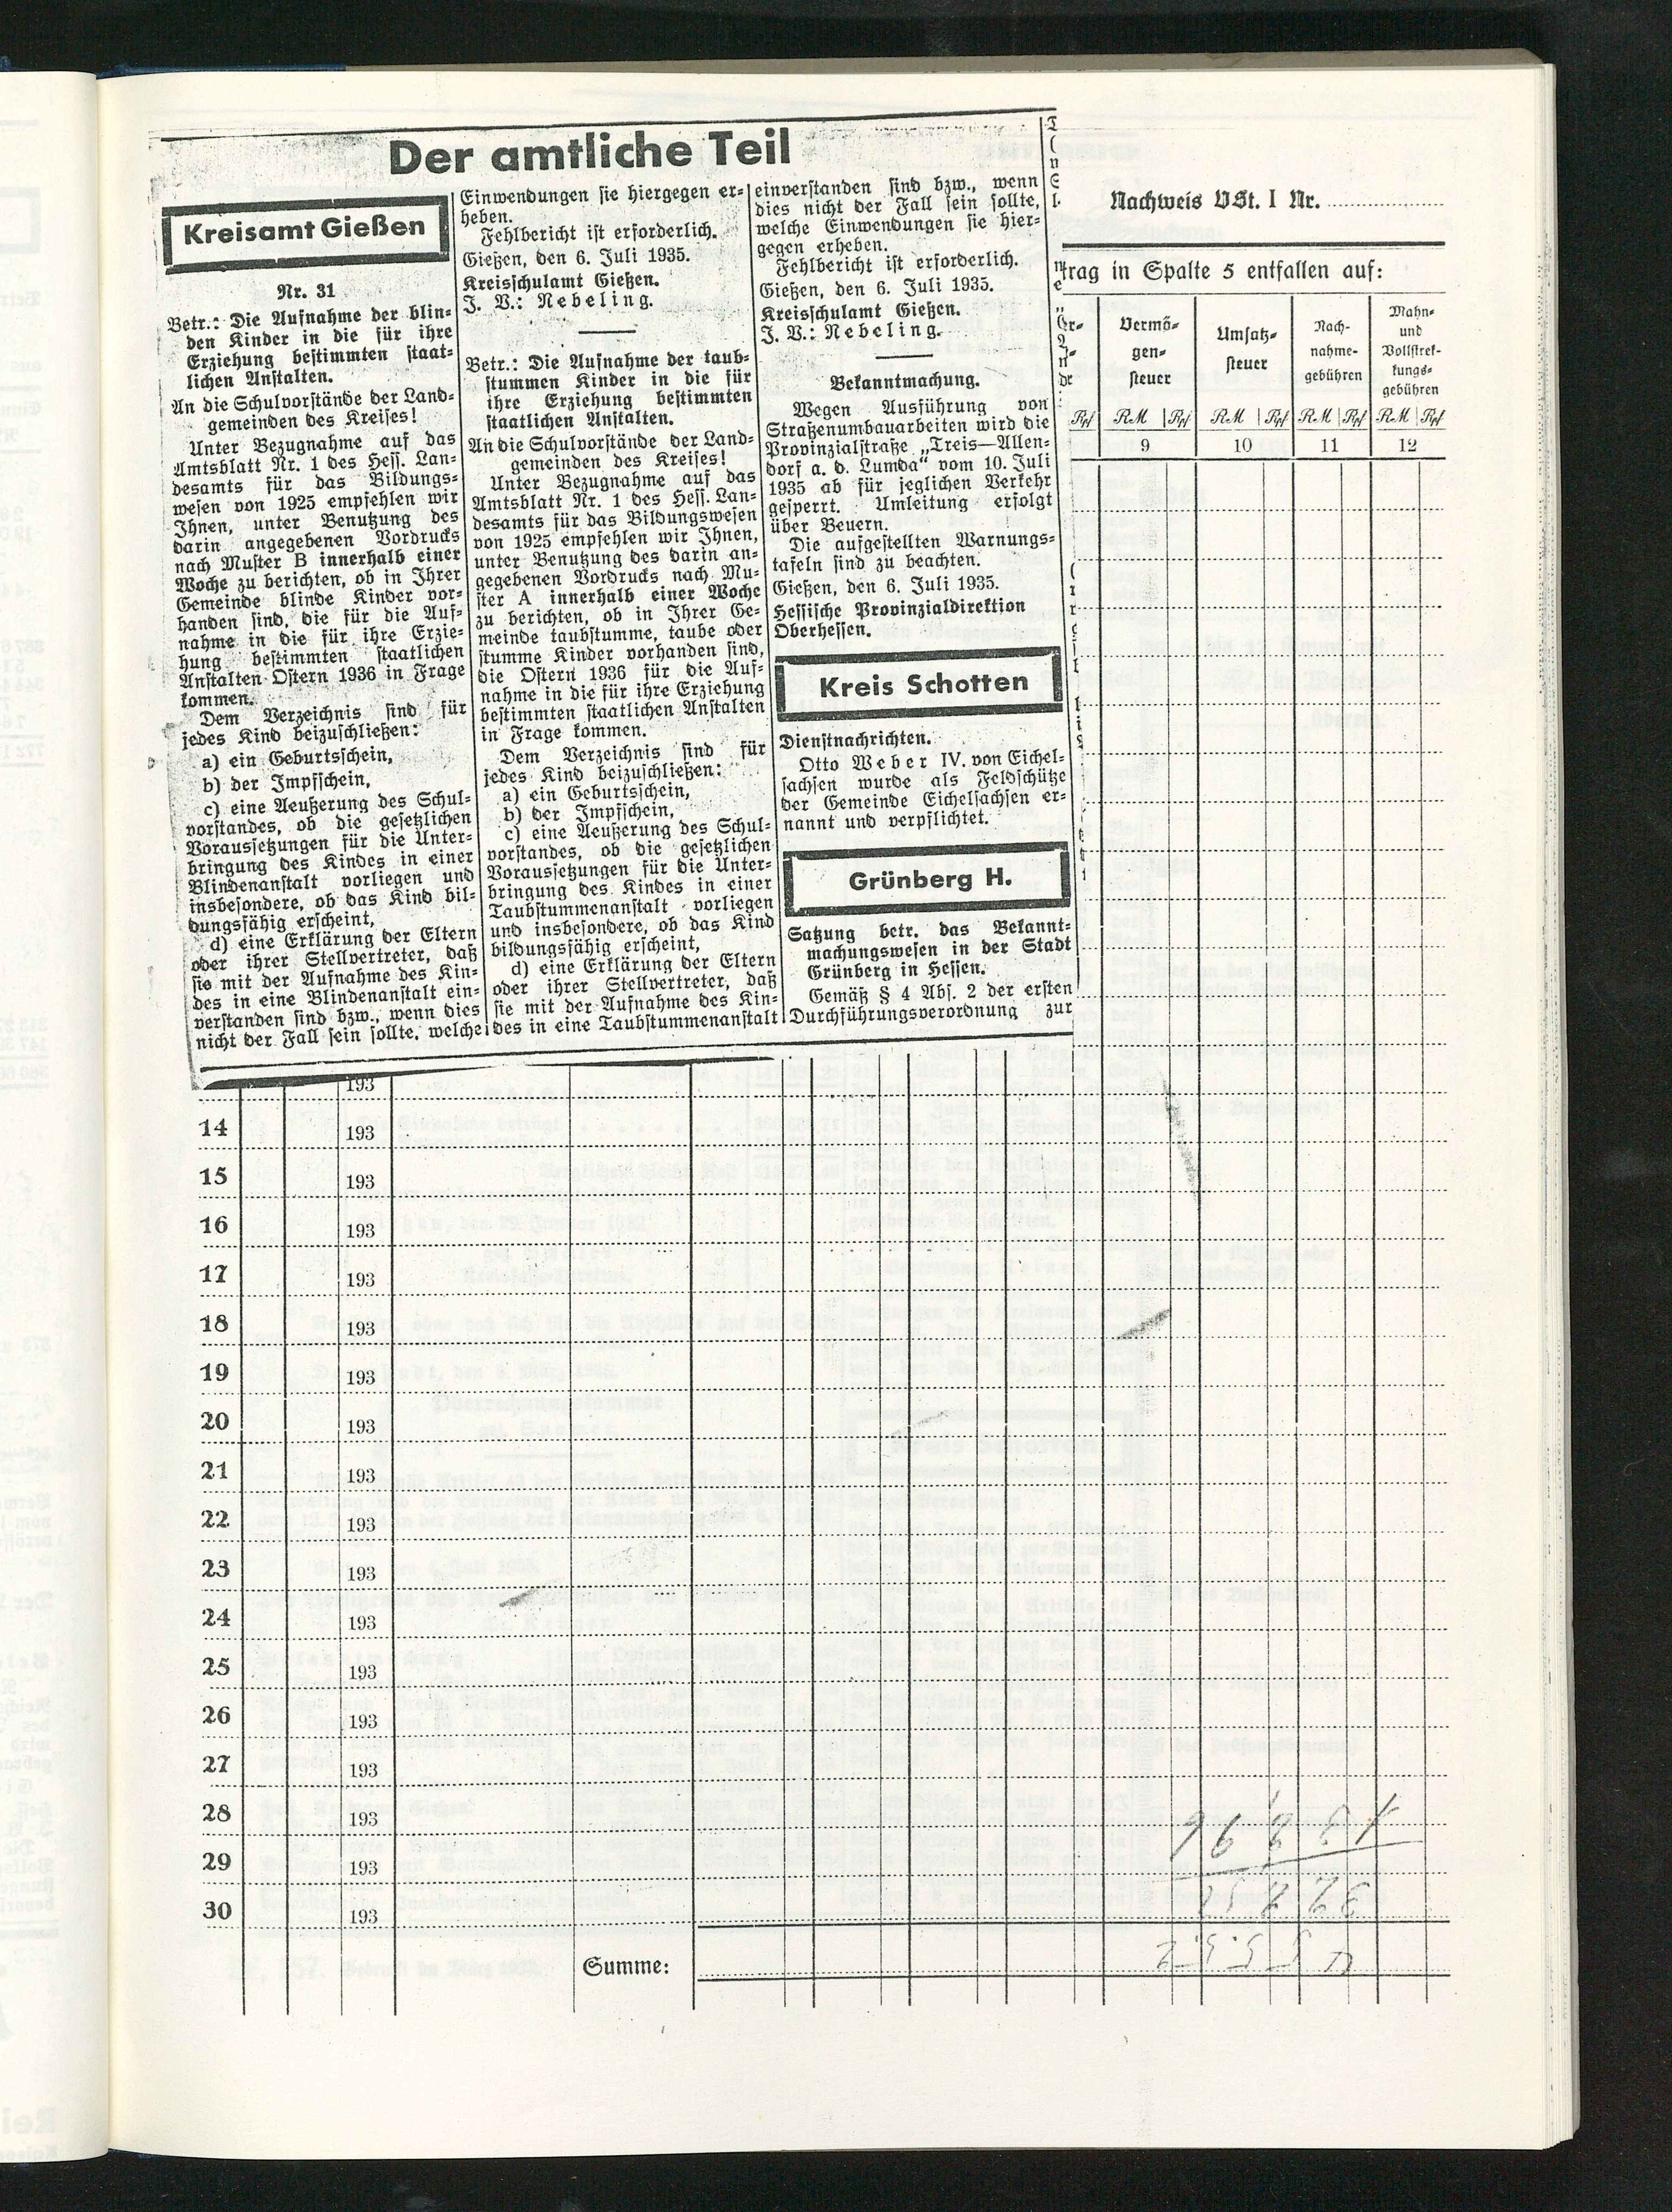 Der amtliche Teil
Kreisamt Gießen
Nr. 31
Betr.: Die Aufnahme der blin-
den Kinder in die für ihre
Erziehung bestimmten staat-
lichen Anstalten.
An die Schulvorstände der Land-
gemeinden des Kreises!
Unter Bezugnahme auf das
Amtsblatt Nr. 1 des Hess. Lan-
desamts für das Bildungs-
wesen von 1925 empfehlen wir
Ihnen, unter Benutzung des
darin angegebenen Vordrucks
nach Muster B innerhalb einer
Woche zu berichten, ob in Ihrer
Gemeinde blinde Kinder vor-
handen sind, die für die Auf-
nahme in die für ihre Erzie-
hung bestimmten staatlichen
Anstalten Ostern 1936 in Frage
kommen.
Dem Verzeichnis sind für
jedes Kind beizuschließen:
a) ein Geburtschein,
b) der Impfschein,
c) eine Aeußerung des Schul-
vorstandes, ob die gesetzlichen
Voraussetzungen für die Unter-
bringung des Kindes in einer
Blindenanstalt vorliegen und
insbesondere, ob das Kind bil-
dungsfähig erscheint,
d) eine Erklärung der Eltern
oder ihrer Stellvertreter, daß
sie mit der Aufnahme des Kin-
des in eine Blindenanstalt ein-
verstanden sind bzw., wenn dies
nicht der Fall sein sollte, welche
Einwendungen sie hiergegen er-
heben.
Fehlbericht ist erforderlich.
Gießen, den 6. Juli 1935.
Kreisschulamt Gießen.
J. V.: Nebeling.
Betr.: Die Aufnahme der taub-
stummen Kinder in die für
ihre Erziehung bestimmten
staatlichen Anstalten.
An die Schulvorstände der Land-
gemeinden des Kreises!
Unter Bezugnahme auf das
Amtsblatt Nr. 1 des Hess. Lan-
desamts für das Bildungswesen
von 1925 empfehlen wir Ihnen,
unter Benutzung des darin an-
gegebenen Vordrucks nach Mu-
ster A innerhalb einer Woche
zu berichten, ob in Ihrer Ge-
meinde taubstumme, taube oder
stumme Kinder vorhanden sind,
die Ostern 1936 für die Auf-
nahme in die für ihre Erziehung
bestimmten staatlichen Anstalten
in Frage kommen.
Dem Verzeichnis sind für
jedes Kind beizuschließen:
a) ein Geburtschein,
b) der Impfschein,
c) eine Aeußerung des Schul-
vorstandes, ob die gesetzlichen
Voraussetzungen für die Unter-
bringung des Kindes in einer
Taubstummenanstalt vorliegen
und insbesondere, ob das Kind
bildungsfähig erscheint,
d) eine Erklärung der Eltern
oder ihrer Stellvertreter, daß
sie mit der Aufnahme des Kin-
des in eine Taubstummenanstalt
einverstanden sind bzw., wenn
dies nicht der Fall sein sollte,
welche Einwendungen sie hier-
gegen erheben.
Fehlbericht ist erforderlich.
Gießen, den 6. Juli 1935.
Kreisschulamt Gießen.
J. V.: Nebeling.
Bekanntmachung.
Wegen Ausführung von
Straßenumbauarbeiten wird die
Provinzialstraße „Treis—Allen-
dorf a. d. Lumda“ vom 10. Juli
1935 ab für jeglichen Verkehr
gesperrt. Umleitung erfolgt
über Beuern.
Die aufgestellten Warnungs-
tafeln sind zu beachten.
Gießen, den 6. Juli 1935.
Hessische Provinzialdirektion
Oberhessen.
Kreis Schotten
Dienstnachrichten.
Otto Weber IV. von Eichel-
sachsen wurde als Feldschütze
der Gemeinde Eichelsachsen er-
nannt und verpflichtet.
Grünberg H.
Satzung betr. das Bekannt-
machungswesen in der Stadt
Grünberg in Hessen.
Gemäß § 4 Abs. 2 der ersten
Durchführungsverordnung zur
Nachweis VSt. I Nr.
trag in Spalte 5 entfallen auf:
Vermö-
gen-
steuer
Umsatz-
steuer
Nach-
nahme-
gebühren
Mahn-
und
Vollstrek-
kungs-
gebühren
Rpf RM Rpf RM Rpf RM Rpf RM Rpf
9 10 11 12
193
14 193
15 193
16 193
17 193
18 193
19 193
20 193
21 193
22 193
23 193
24 193
25 193
26 193
27 193
28 193
29 193
30 193
Summe: